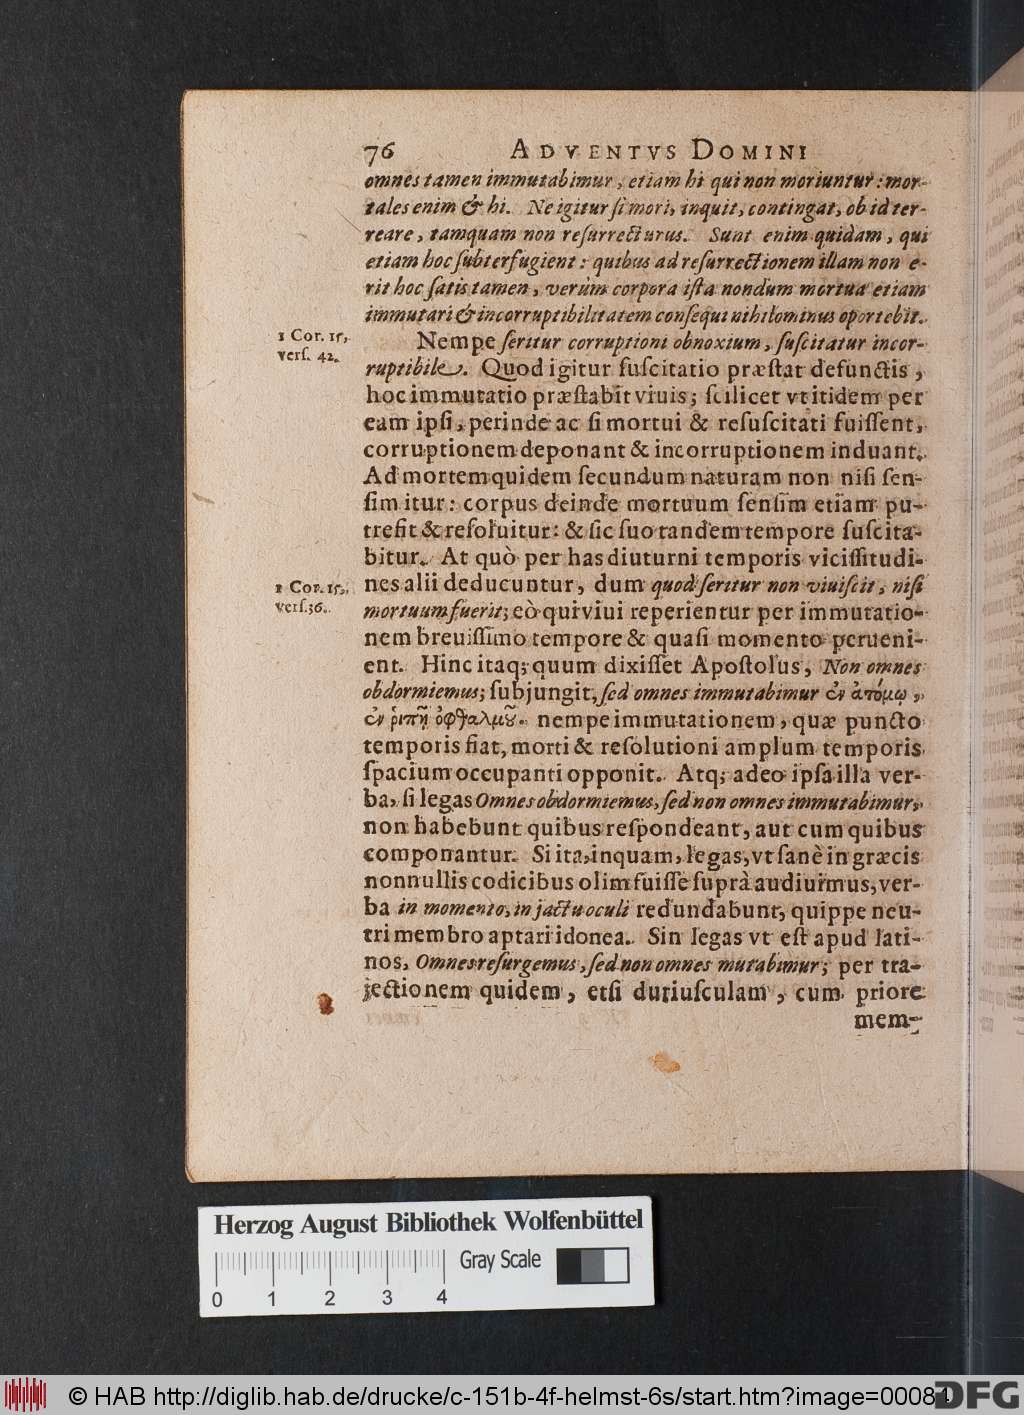 76 ADVENTVS DOMINI
omnes tamen immutabimur, etiam hi qui non moriuntur: mor-
tales enim & hi. Ne igitur ſi mori, inquit, contingat, ob id ter-
reare, tamquam non reſurrecturus. Sunt enim quidam, qui
etiam hoc ſubterfugient: quibus ad reſurrectionem illam non e-
rit hoc ſatis tamen, verùm corpora iſta nondum mortua etiam
immutari & incorruptibilitatem conſequi nihilominus oportebit.
1 Cor. 15,
verſ. 42.
Nempe ſeritur corruptioni obnoxium, ſuſcitatur incor-
ruptibile. Quod igitur ſuſcitatio præſtat defunctis,
hoc immutatio præſtabit viuis; ſcilicet vt itidem per
eam ipſi, perinde ac ſi mortui & reſuſcitati fuiſſent,
corruptionem deponant & incorruptionem induant.
Ad mortem quidem ſecundum naturam non niſi ſen-
ſim itur: corpus deinde mortuum ſenſim etiam pu-
trefit & reſoluitur: & ſic ſuo tandem tempore ſuſcita-
bitur. At quò per has diuturni temporis viciſſitudi-
1 Cor. 15,
verſ. 36.
nes alii deducuntur, dum quod ſeritur non viuiſcit, niſi
mortuum fuerit; eò qui viui reperientur per immutatio-
nem breuiſſimo tempore & quaſi momento perueni-
ent. Hinc itaq; quum dixiſſet Apoſtolus, Non omnes
obdormiemus; ſubjungit, ſed omnes immutabimur ἐν ἀτόμῳ,
ἐν ῥιπῇ ὀφθαλμοῦ. nempe immutationem, quæ puncto
temporis fiat, morti & reſolutioni amplum temporis
ſpacium occupanti opponit. Atq; adeo ipſa illa ver-
ba, ſi legas Omnes obdormiemus, ſed non omnes immutabimur,
non habebunt quibus reſpondeant, aut cum quibus
componantur. Si ita, inquam, legas, vt ſanè in græcis
nonnullis codicibus olim fuiſſe ſuprà audiuimus, ver-
ba in momento, in jactu oculi redundabunt, quippe neu-
tri membro aptari idonea. Sin legas vt eſt apud lati-
nos, Omnes reſurgemus, ſed non omnes mutabimur; per tra-
jectionem quidem, etſi duriuſculam, cum priore
mem-
Herzog August Bibliothek Wolfenbüttel
Gray Scale
0 1 2 3 4
© HAB http://diglib.hab.de/drucke/c-151b-4f-helmst-6s/start.htm?image=00084
DFG